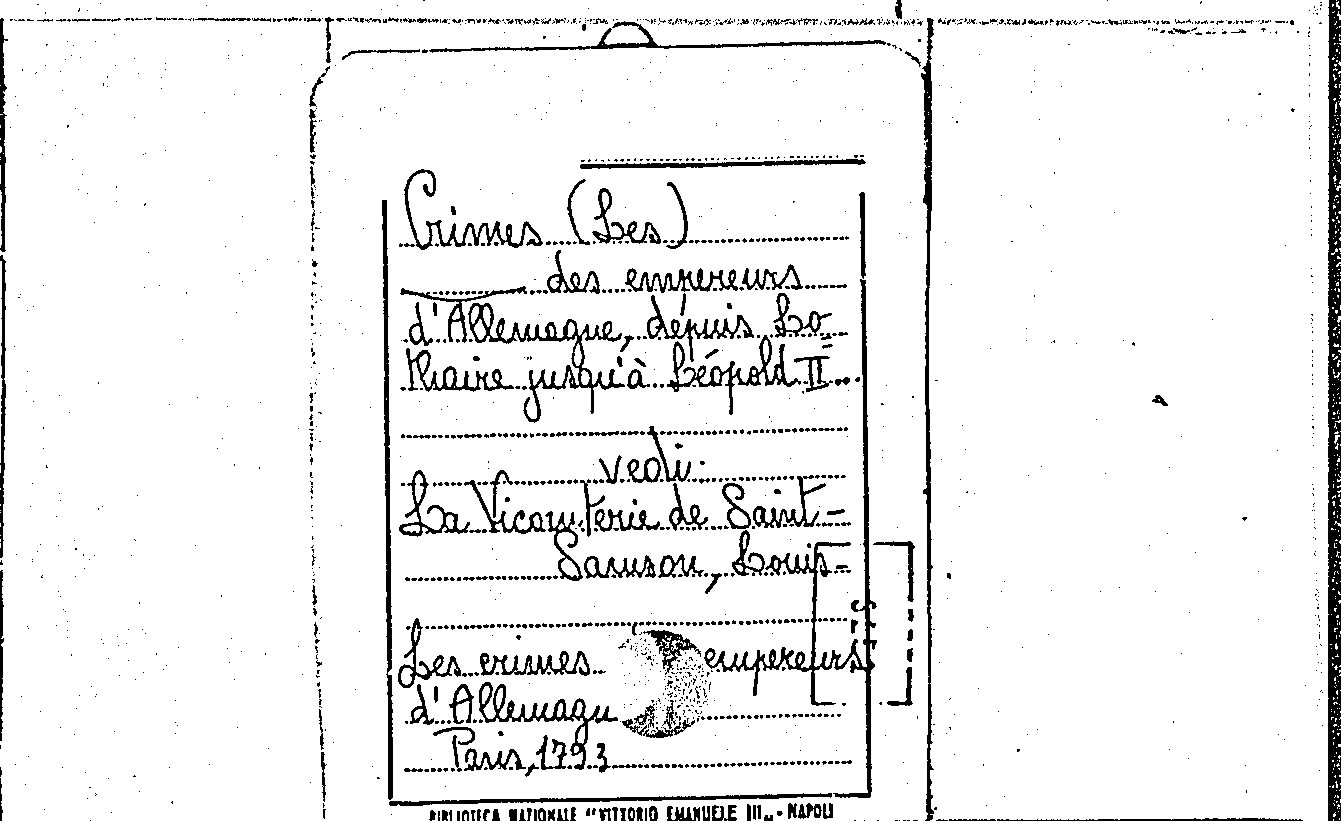 Crimes (Les)
des empereurs
d'Allemagne, dépuis Lo
thaire jusqu'à Léopold II...
vedi:
La Vicomterie de Saint-
Samson, Louis-
Les crimes empereurs
d'Allemagn
Paris, 1793
BIBLIOTECA NAZIONALE "VITTORIO EMANUELE III„ - NAPOLI